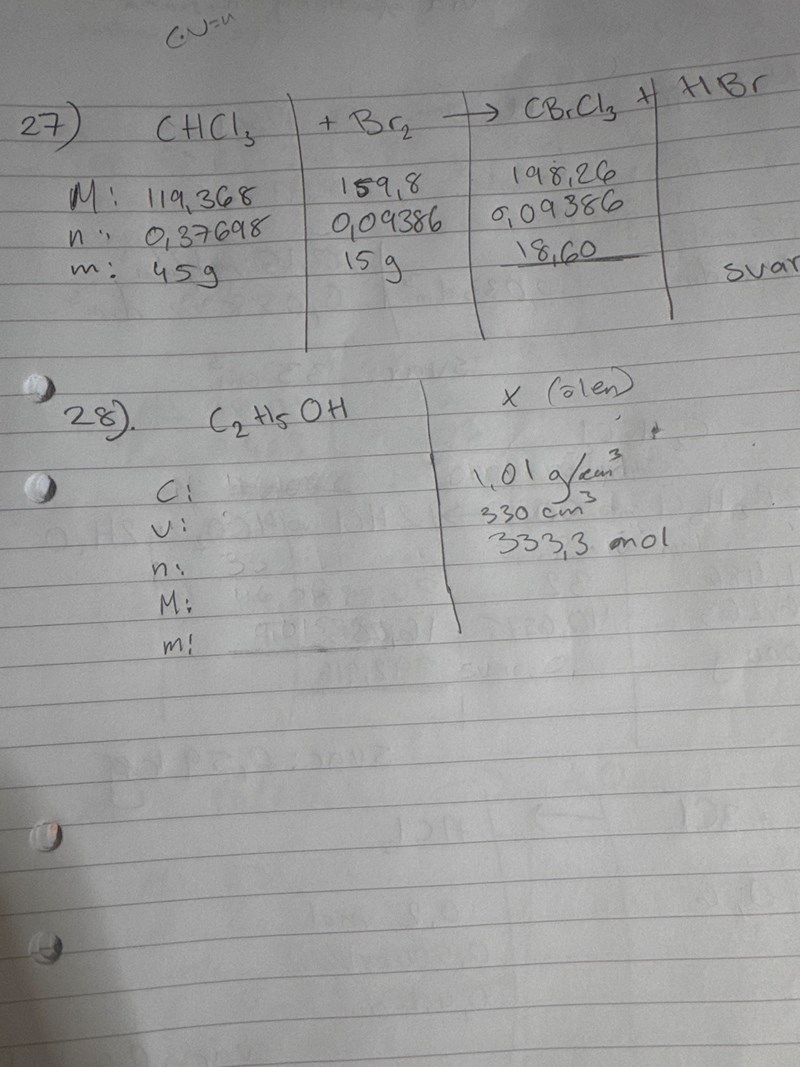 C·V=n
27) CHCl₃ + Br₂ → CBrCl₃ + HBr
M: 119,368 159,8 198,26
n: 0,37698 0,09386 0,09386
m: 45g 15g 18,60
svar
28). C₂H₅OH x (ölen)
C: 1,01 g/cm³
v: 330 cm³
n: 333,3 mol
M:
m: